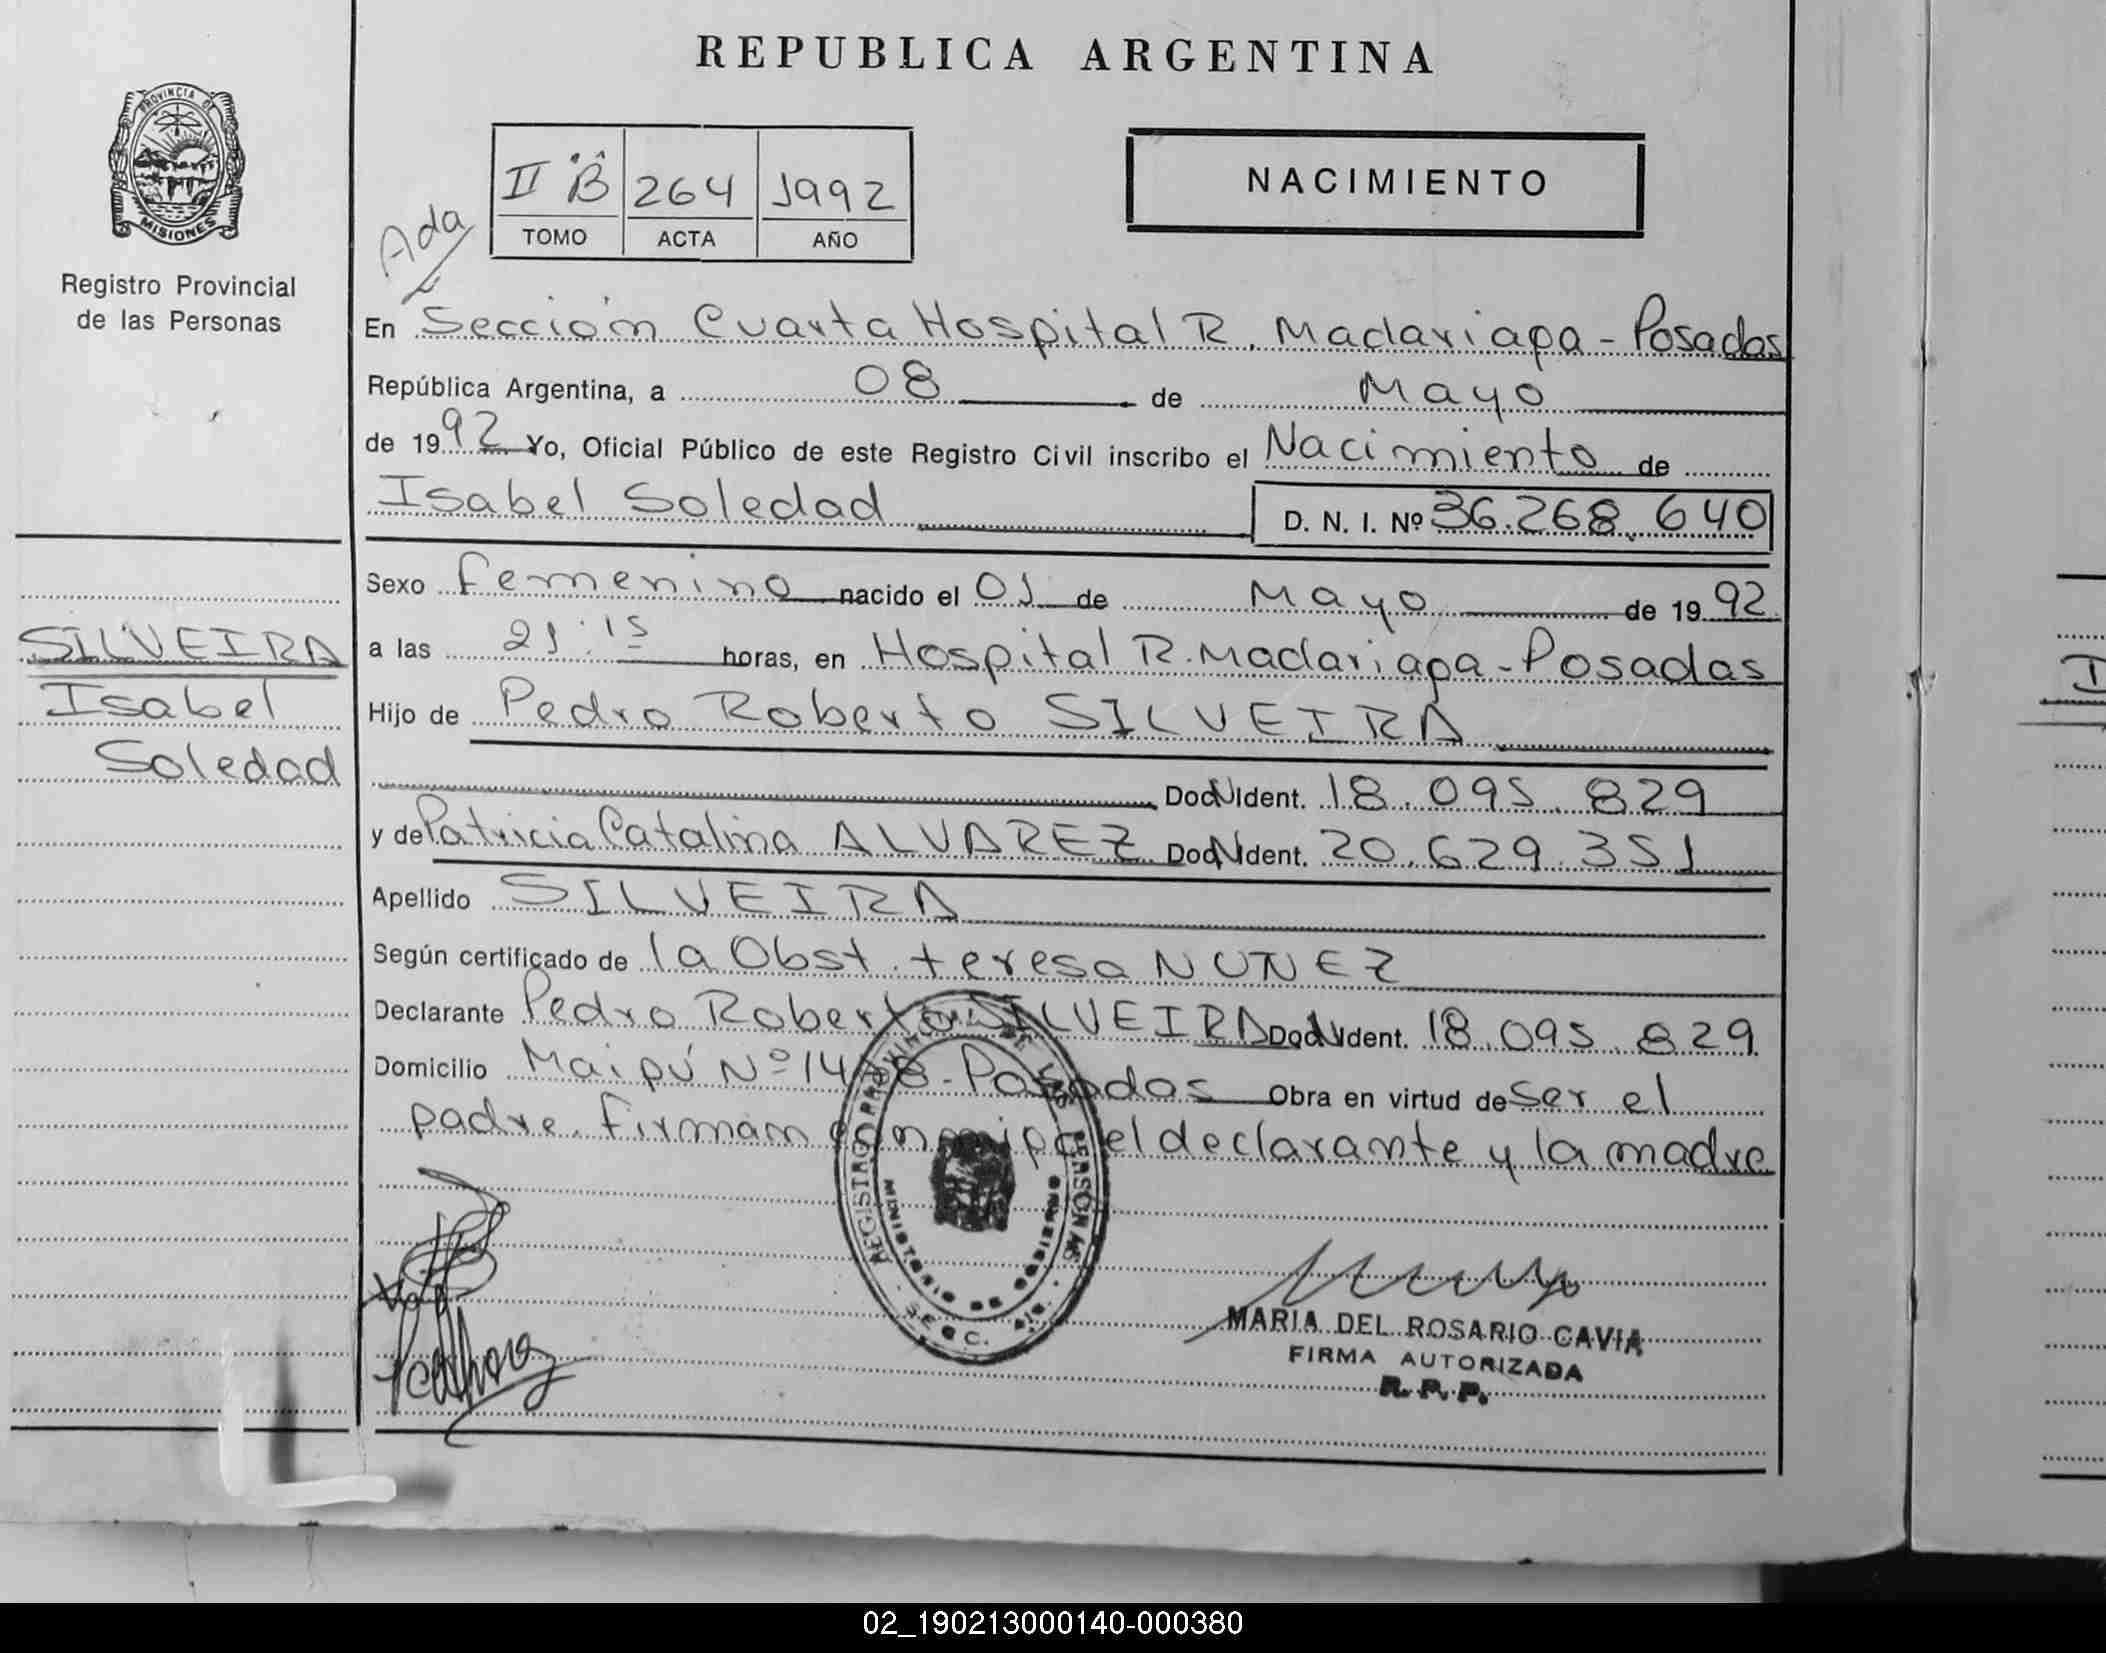 REPUBLICA ARGENTINA
PROVINCIA DE
MISIONES
Registro Provincial
de las Personas
Ada
II B 264 1992
TOMO ACTA AÑO
NACIMIENTO
En Sección Cuarta Hospital R. Madariaga - Posadas
República Argentina, a 08 de Mayo
de 1992 Yo, Oficial Público de este Registro Civil inscribo el Nacimiento de
Isabel Soledad D. N. I. Nº 36.268.640
Sexo femenino nacido el 01 de Mayo de 1992
a las 21:15 horas, en Hospital R. Madariaga - Posadas
Hijo de Pedro Roberto SILVEIRA
Doc. N Ident. 18.095.829
y de Patricia Catalina ALVAREZ Doc. N Ident. 20.629.351
Apellido SILVEIRA
Según certificado de la Obst. teresa NUNEZ
Declarante Pedro Roberto SILVEIRA Doc. N Ident. 18.095.829
Domicilio Maipú Nº 14 8 - Posadas Obra en virtud de Ser el
padre. firmam conmigo el declarante y la madre
SILVEIRA
Isabel
Soledad
REGISTRO PROVINCIAL DE LAS PERSONAS
MINISTERIO DE GOBIERNO
SECC.
MARIA DEL ROSARIO CAVIA
FIRMA AUTORIZADA
R. P. P.
I
02_190213000140-000380